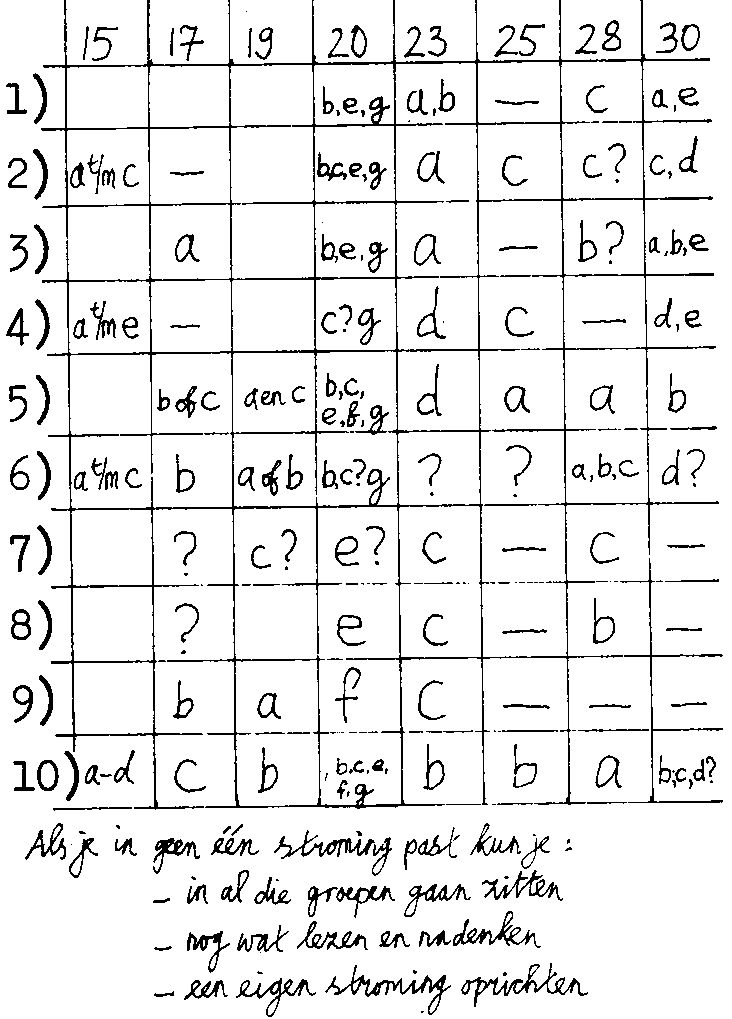 15 17 19 20 23 25 28 30
1) b,e,g a,b — c a,e
2) a t/m c — b,c,e,g a c c? c,d
3) a b,e,g a — b? a,b,e
4) a t/m e — c?g d c — d,e
5) b of c a en c b,c, e,f,g d a a b
6) a t/m c b a of b b,c?g ? ? a,b,c d?
7) ? c? e? c — c —
8) ? e c — b —
9) b a f c — — —
10) a-d c b b,c,e, f,g b b a b,c,d?
Als je in geen één stroming past kun je :
– in al die groepen gaan zitten
– nog wat lezen en nadenken
– een eigen stroming oprichten